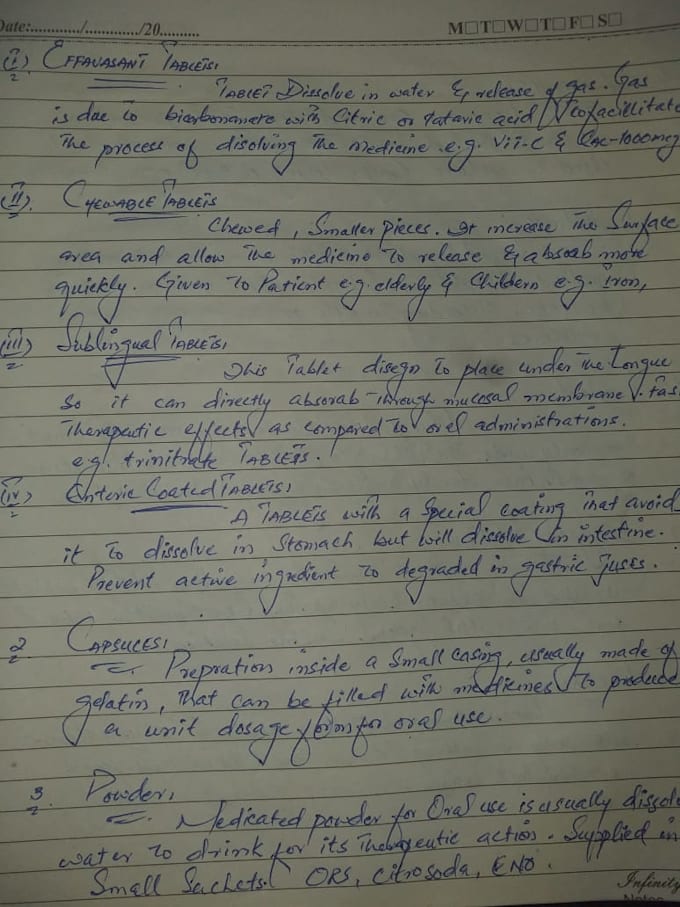 Date:............./............./20..........
M□T□W□T□F□S□
(i) EFFAVASANT TABLETS:
TABLET Dissolve in water & release of gas. Gas
is due to bicarbonamere with Citric or tataric acid to facillitate
The process of disolving The medicine e.g. Vit-C & Cac-1000mcg
(ii). CHEWABLE TABLETS
Chewed, Smaller pieces. It increase The Surface
area and allow The medicine To release & absoab more
quickly. Given To Patient e.g. elderly & Childern e.g. iron,
(iii) Sublingual TABLETS:
This Tablet disegn To place under The Tongue
So it can directly absorab Through mucosal membrane. Fas
Therapeutic effects as compared To oral administrations.
e.g. trinitrate TABLETS.
(iv) Enteric Coated TABLETS:
A TABLETS with a Special coating that avoid
it To dissolve in Stomach but will dissolve in intestine.
Prevent active ingredient To degraded in gastric Juses.
2 CAPSULES:
Prepration inside a Small casing, usually made of
gelatin, That can be filled with medicines to produce
a unit dosage form for oral use.
3. Powder:
Medicated powder for Oral use is usually dissol
water To drink for its Therapeutic action. Supplied in
Small Sachets. ORS, Citrosoda, ENO.
Infinity
Notes